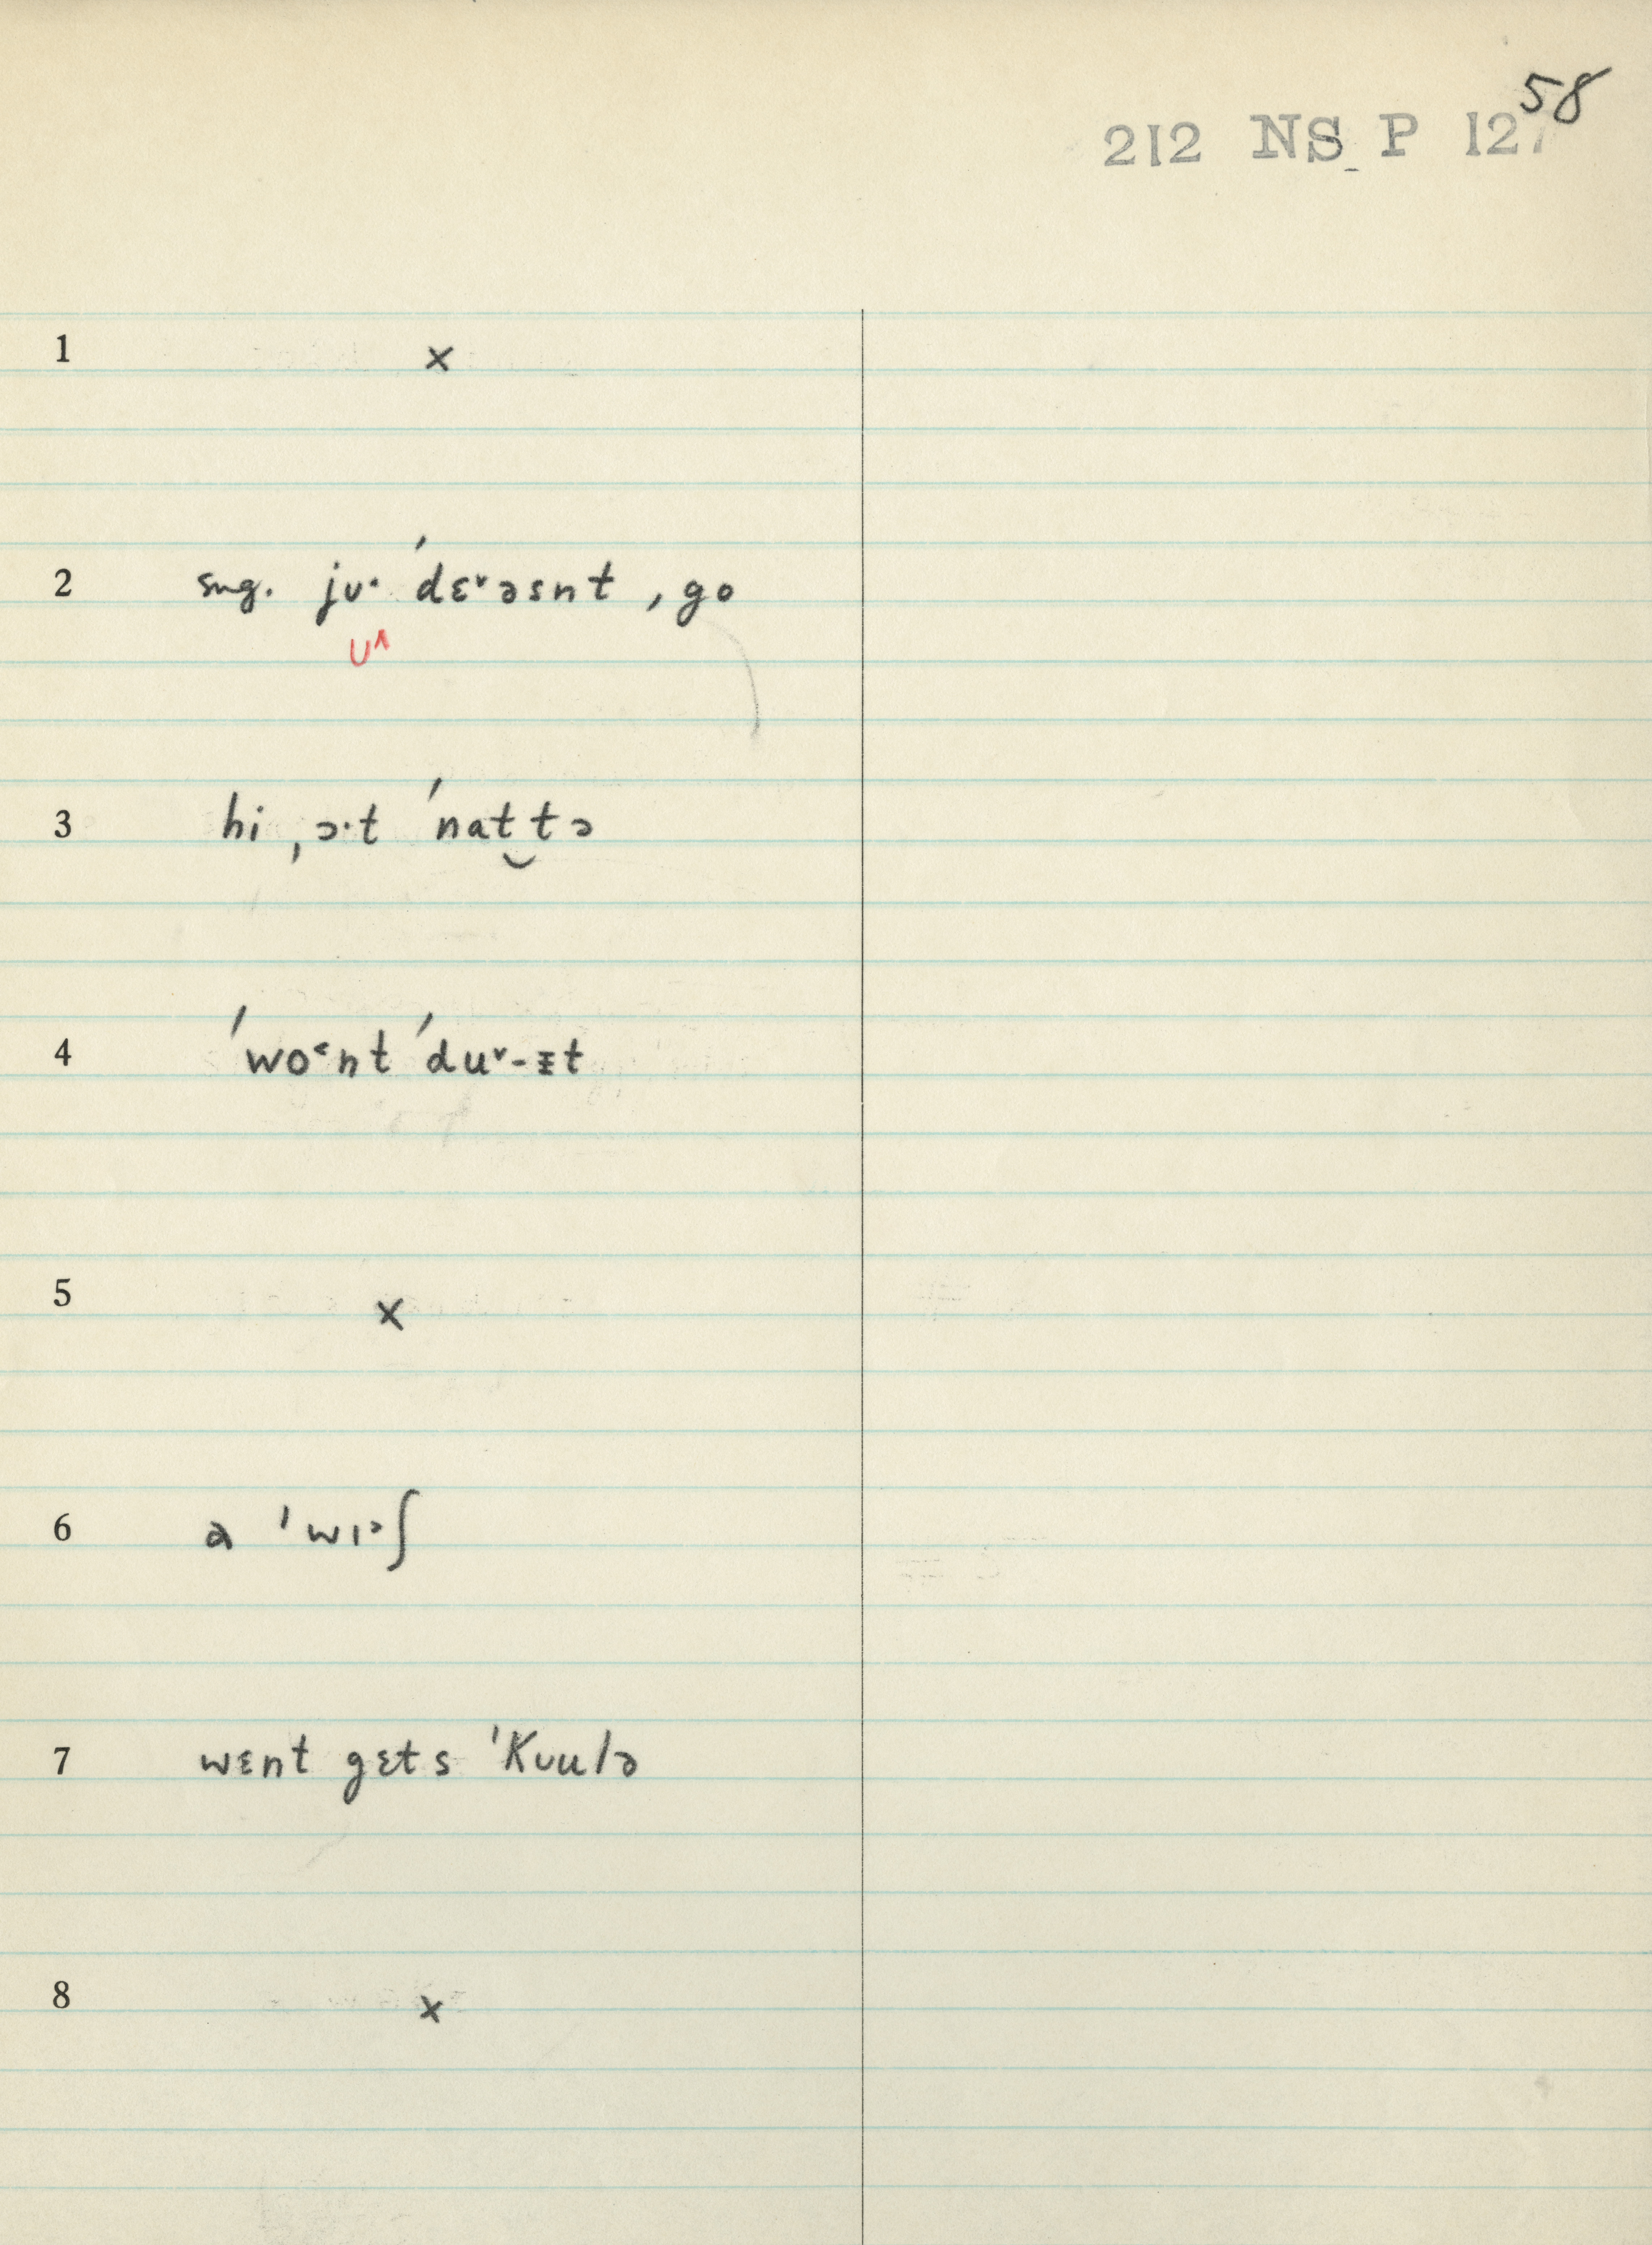 58
212 NS P 127
1 ×
2 sug. jʊ· ˈdɛ˅əsnt ˌgo
ʊ˄
3 hi ˌɔ·t ˈnat‿tə
4 ˈwo˂nt ˈdu˅-ᵻt
5 ×
6 a ˈwɪᵊʃ
7 wɛnt gɛts ˈKʊulə
8 ×